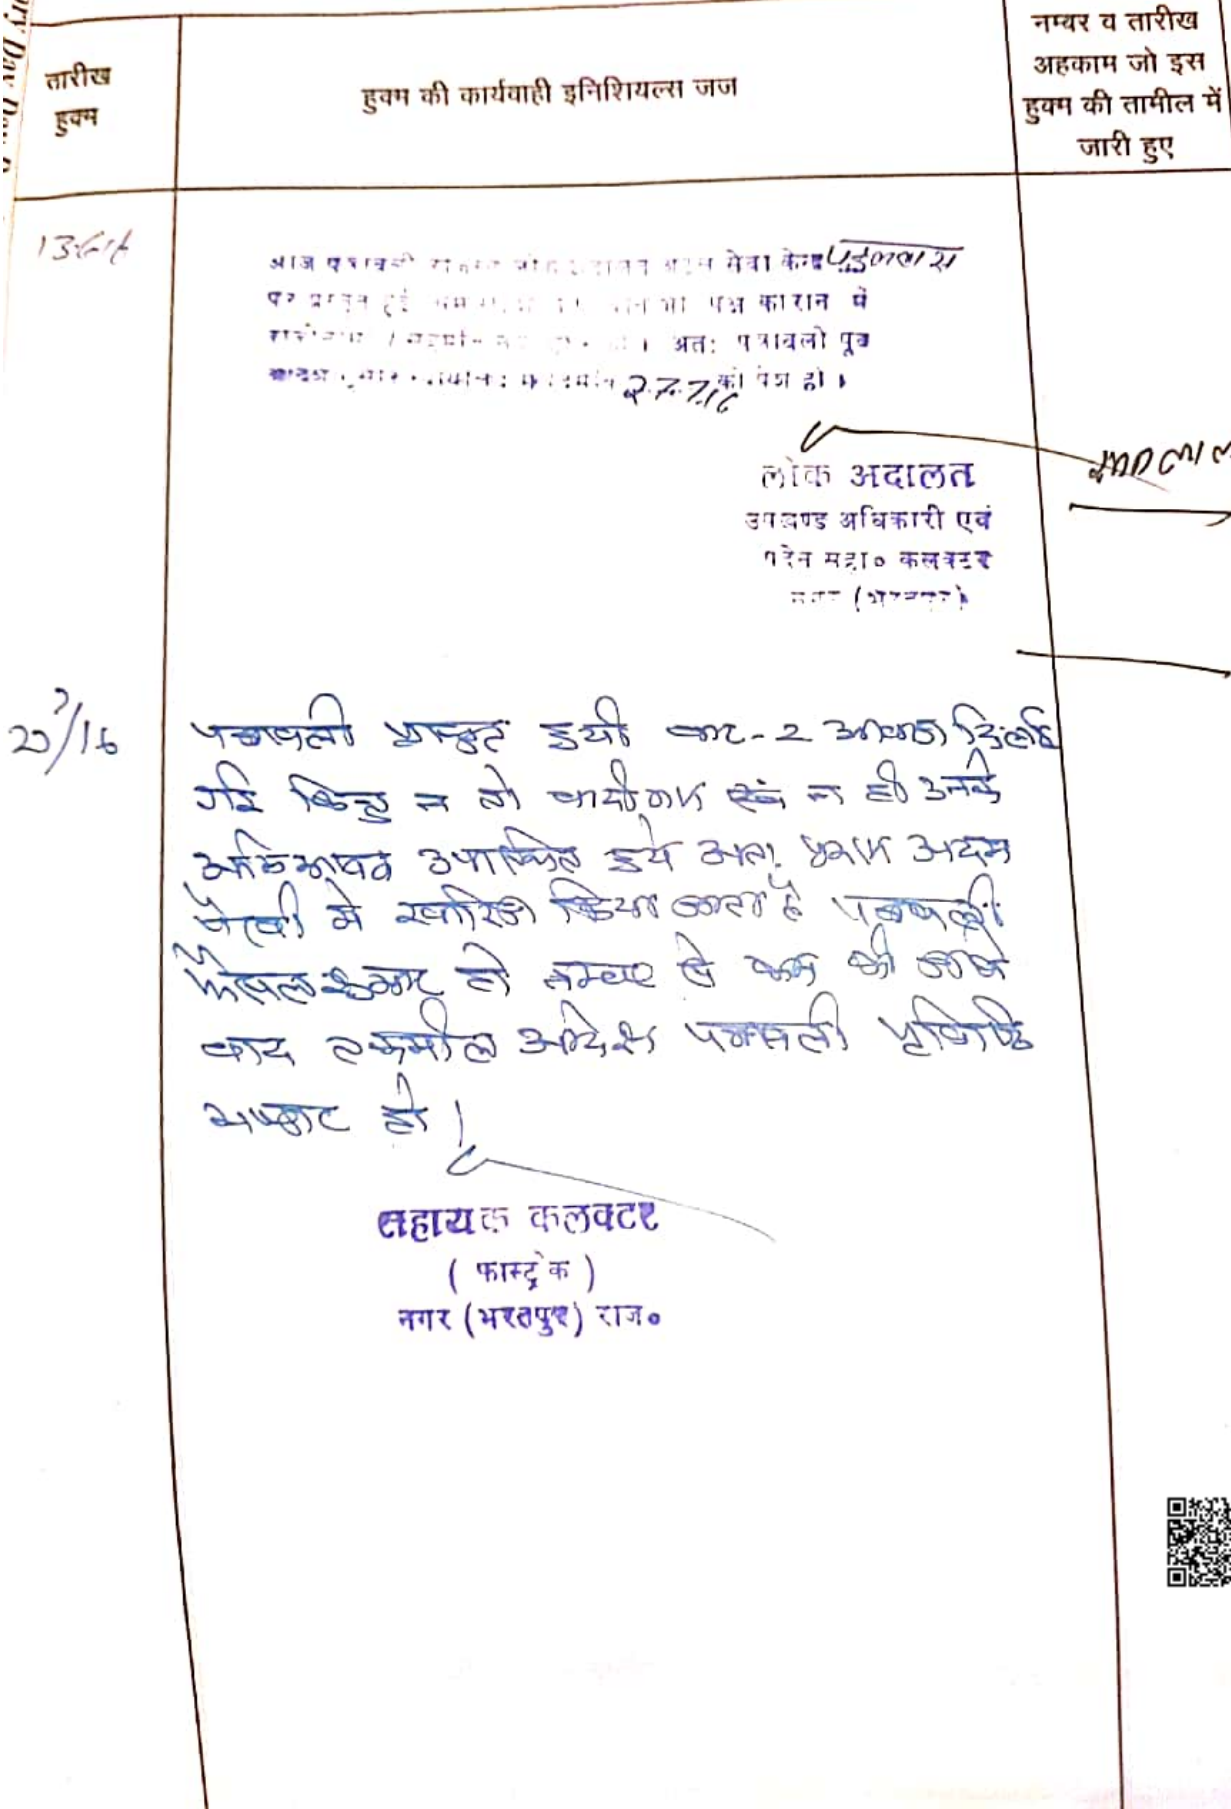 तारीख
हुक्म
हुक्म की कार्यवाही इनिशियल्स जज
नम्बर व तारीख
अहकाम जो इस
हुक्म की तामील में
जारी हुए
आज पत्रावली सेवा केन्द्र
पर प्रस्तुत हुई पक्ष कारान में
। अतः पत्रावली पूर्व
27.7.16 को पेश हो ।
लोक अदालत
उपखण्ड अधिकारी एवं
पदेन सहा० कलक्टर
नगर (भरतपुर)
पत्रावली प्रस्तुत हुयी बार-2 आवाज दिलाई
गई किन्तु न तो प्रार्थीगण एवं न ही उनके
अभिभाषक उपस्थित हुये अतः प्रकरण अदम
पैरवी में खारिज किया जाता है पत्रावली
फैसल शुमार हो नम्बर से कम की जावे
बाद तकमील आदेश पत्रावली
हो ।
सहायक कलक्टर
( फास्ट्रेक )
नगर (भरतपुर) राज०